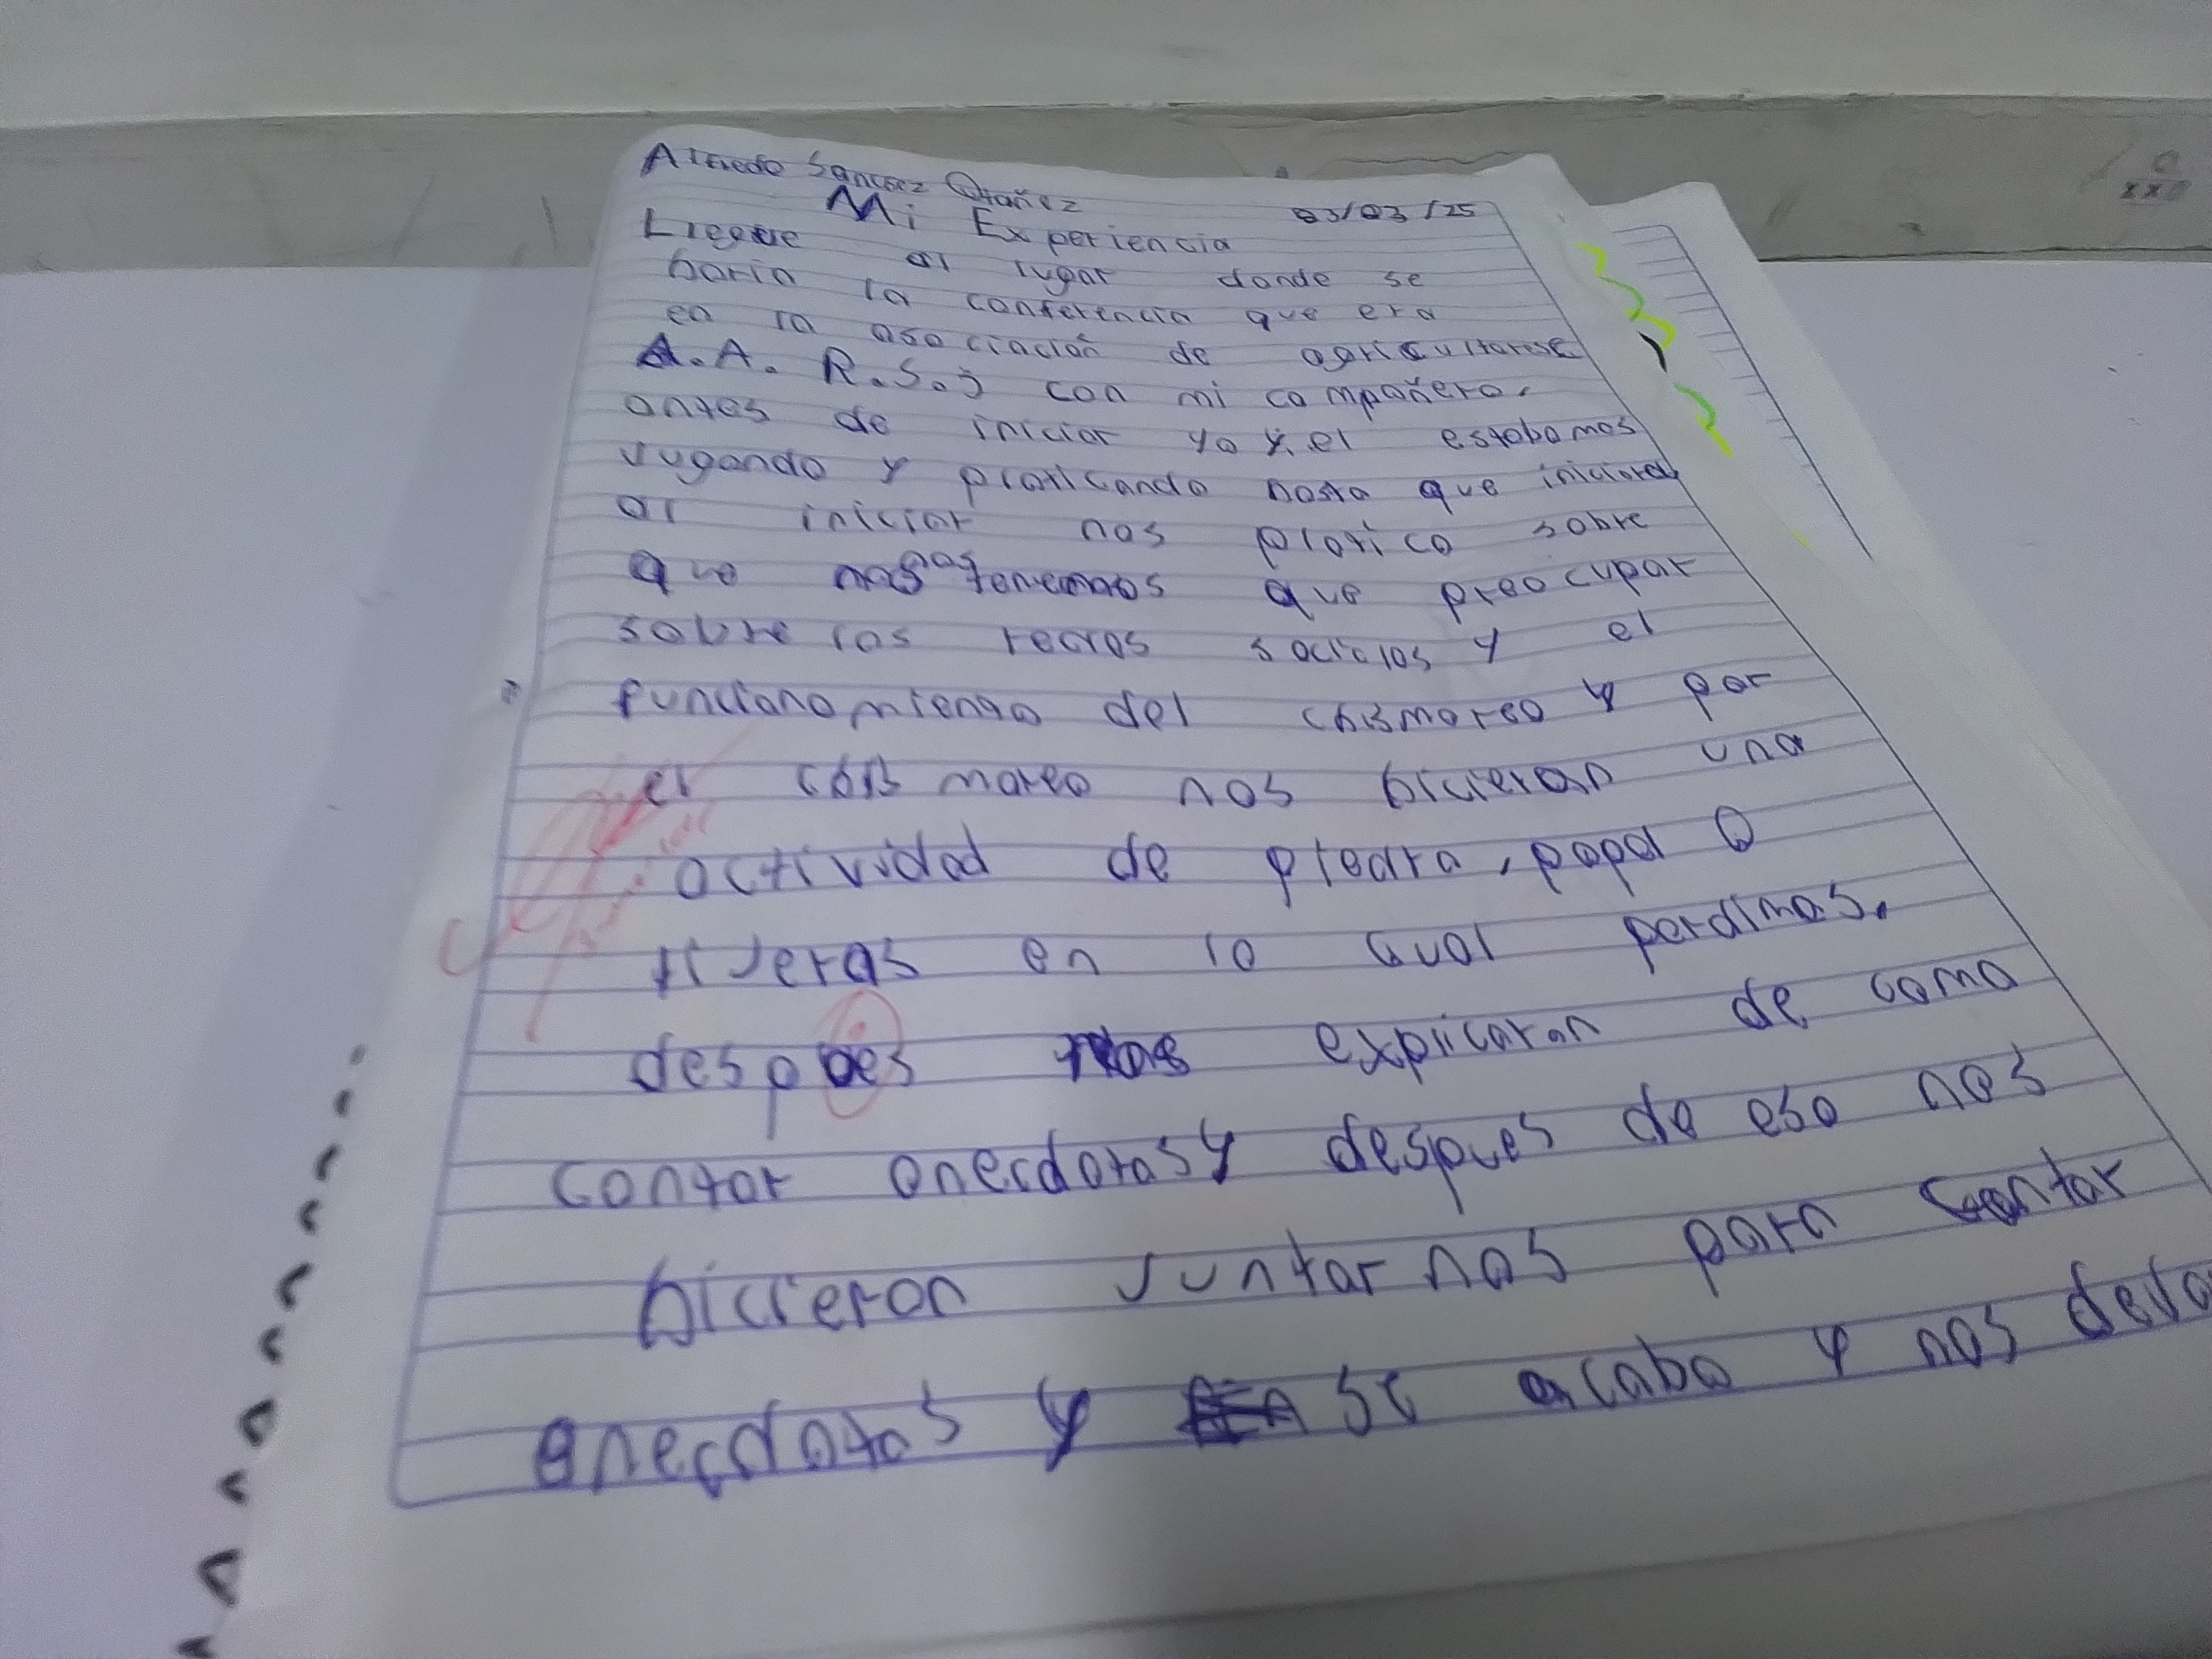 Alfredo Sanchez Otañez
Mi Experiencia 03/03/25
Llegue al lugar donde se
haria la conferencia que era
en la asociación de agricultores
A.A.R.S.j con mi compañero.
antes de iniciar yo y el estabamos
jugando y platicando hasta que iniciara
al iniciar nos platico sobre
que nos tenemos que preocupar
sobre las redes sociales y el
funcionamiento del chismoreo y por
el chismoreo nos hicieron una
actividad de piedra, papel o
tijeras en la qual perdimos.
despues nos explicaron de como
contar anecdotas y despues de eso nos
hicieron juntarnos para contar
anecdotas y se acabo y nos